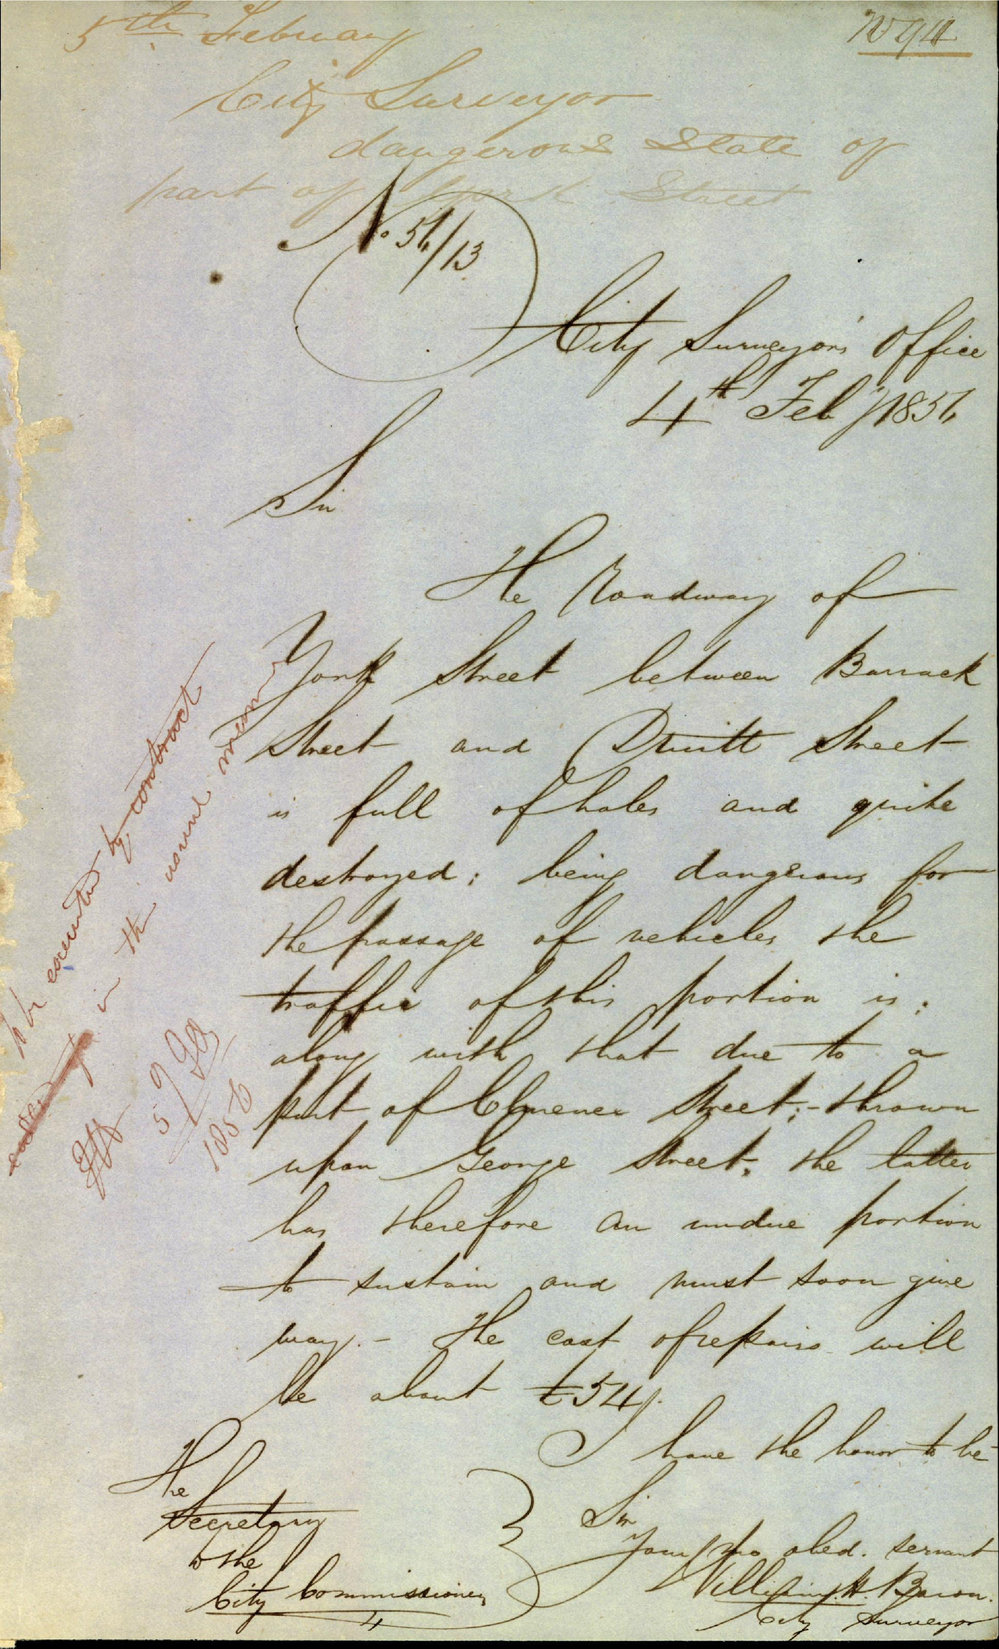 5th February
City Surveyor
dangerous State of
part of York Street
No. 56/13
City Surveyor's Office
4th Feby 1856
Sir
The Roadway of
York Street between Barrack
Street and Druitt Street
is full of holes and quite
destroyed; being dangerous for
the passage of vehicles the
traffic of this portion is;
along with that due to a
part of Clarence Street;- thrown
upon George Street, the latter
has therefore an undue portion
to sustain and must soon give
way.- The cost of repairs will
be about £54
I have the honor to be
Sir
Your obed. servant
William H. Baron.
City Surveyor
The
Secretary
to the
City Commissioners
to be executed by contract
in the usual manner
1856